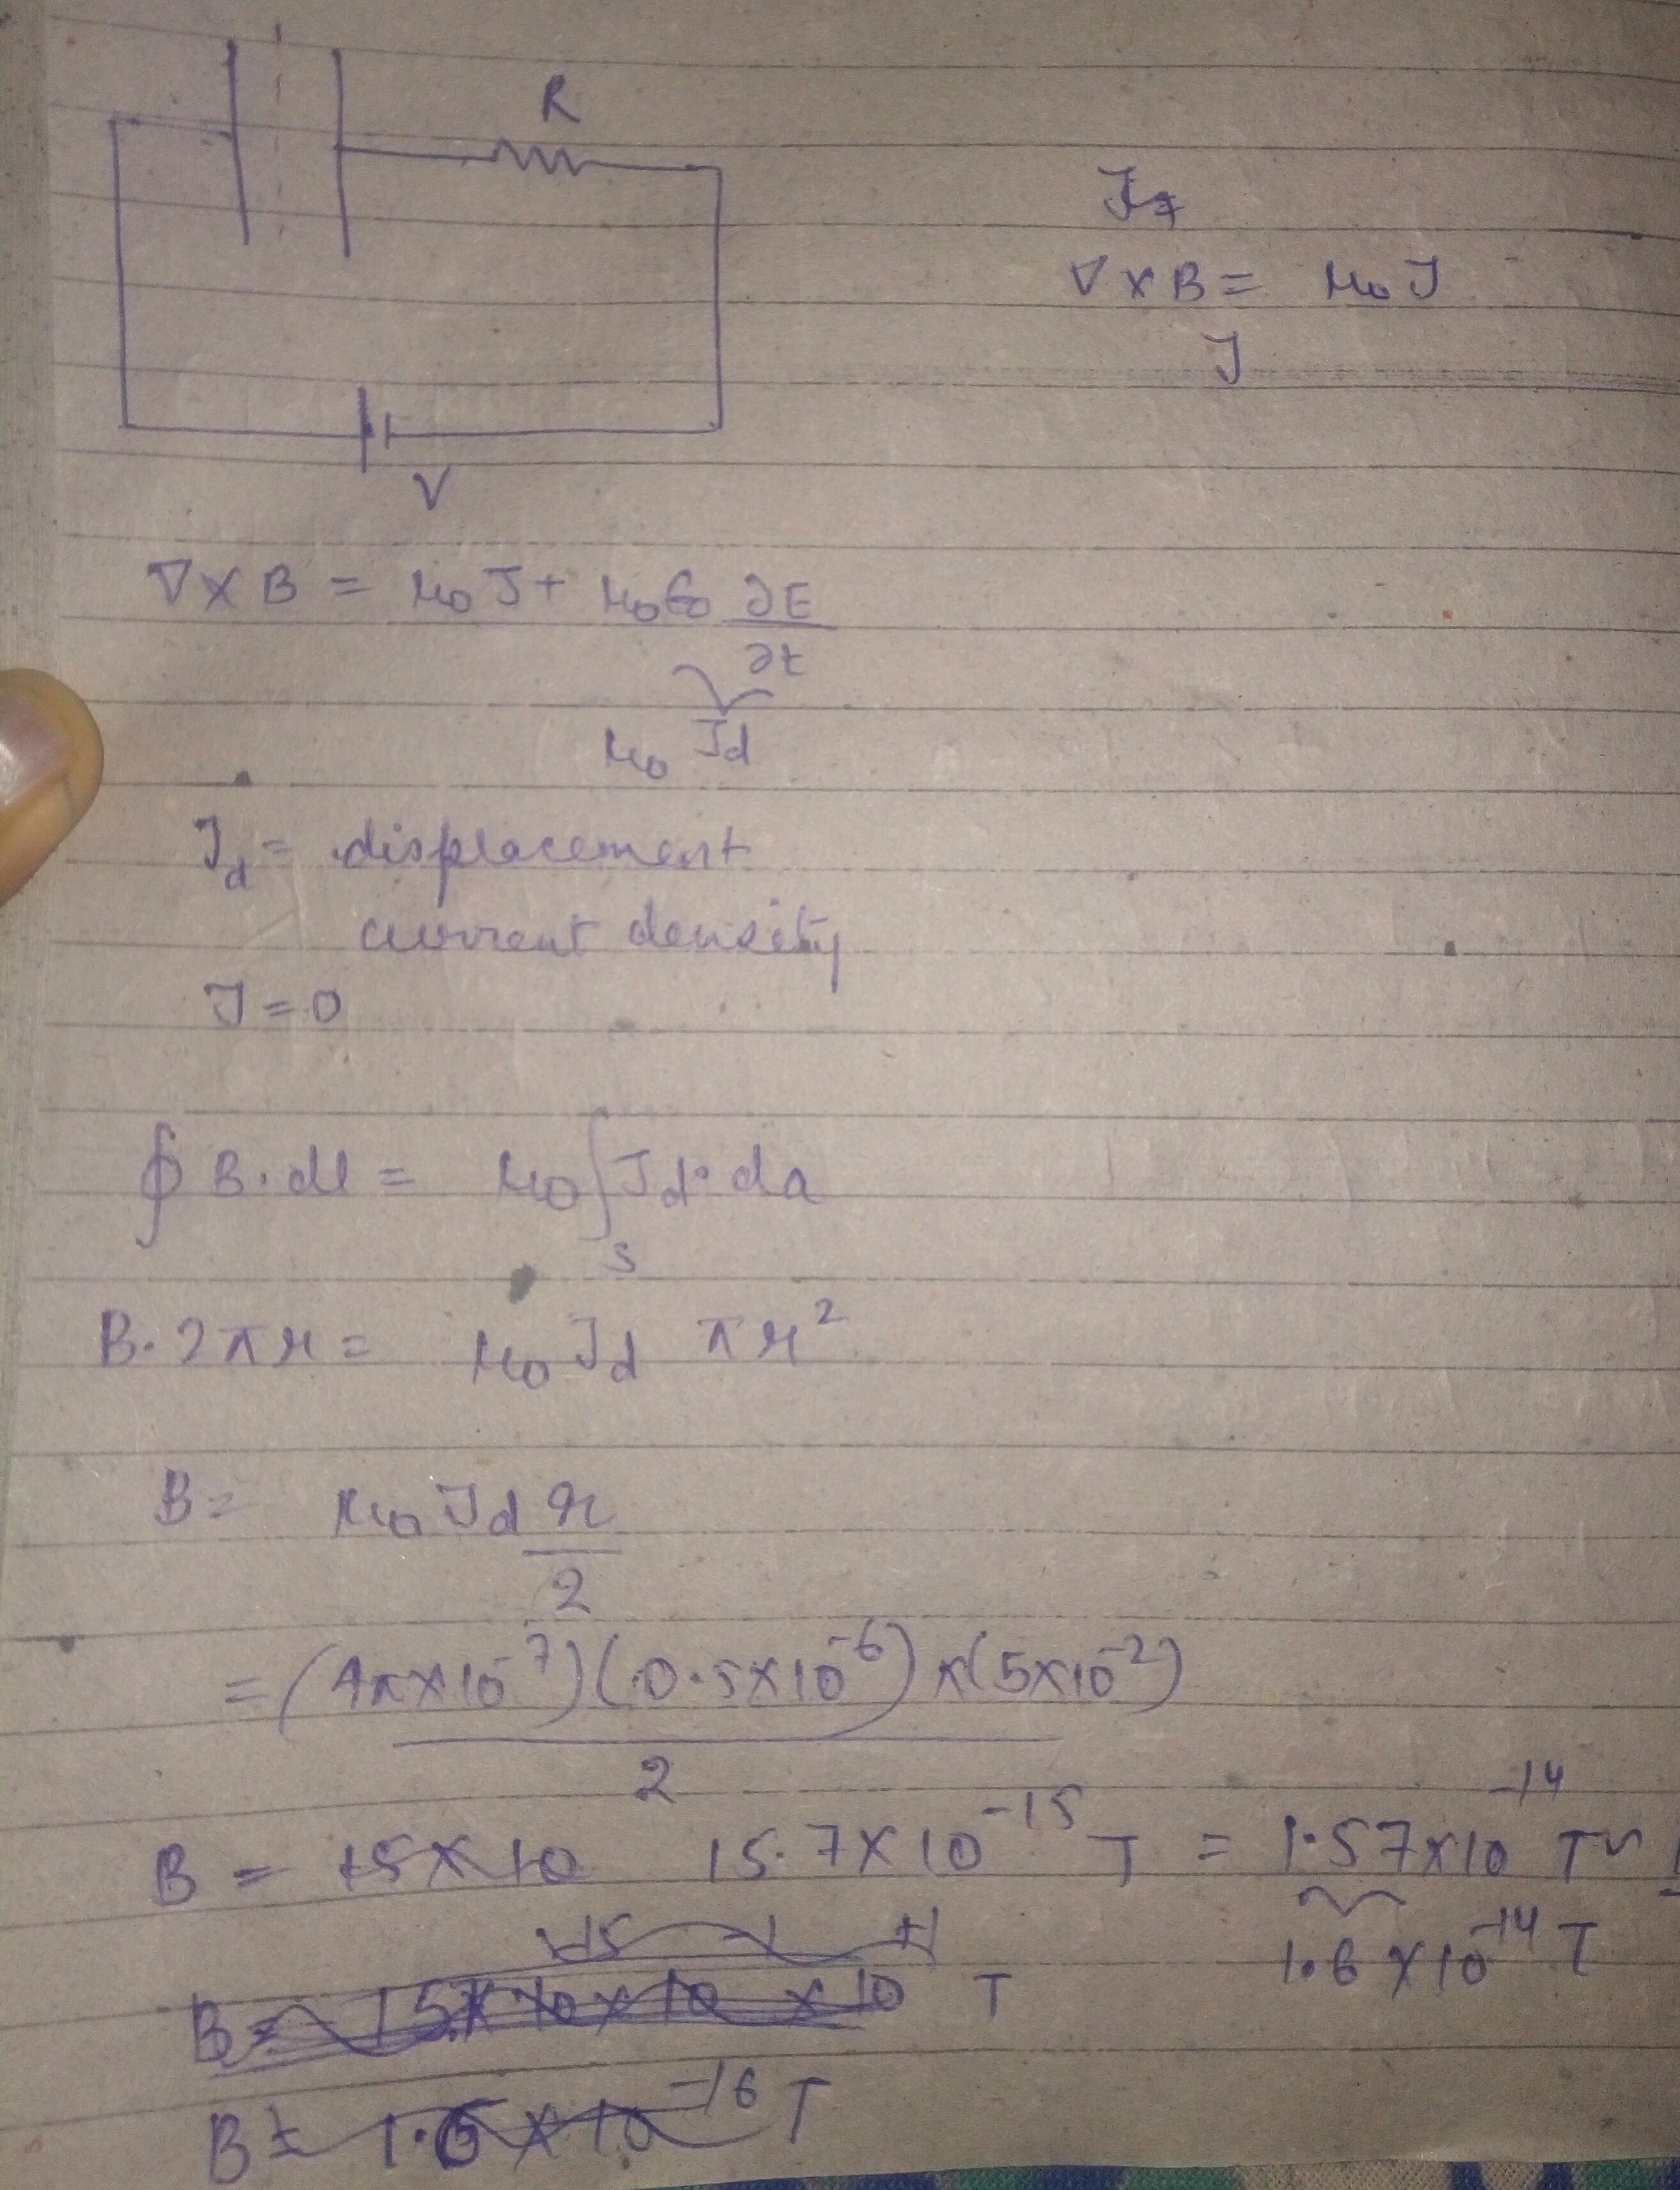 R
V
J≠
∇×B = μ₀J
J
∇×B = μ₀J + μ₀ε₀ ∂E
∂t
μ₀ Jd
Jd = displacement
current density
J = 0
∮ B·dl = μ₀ ∫ Jd·da
S
B·2πr = μ₀ Jd πr²
B = μ₀ Jd r
2
= (4π×10⁻⁷)(0.5×10⁻⁶)×(5×10⁻²)
2
B = 15×10 15.7×10⁻¹⁵ T = 1.57×10⁻¹⁴ T ~
1.6×10⁻¹⁴ T
B = 15×10×10 ×10 T
B = 1.6×10⁻¹⁶ T